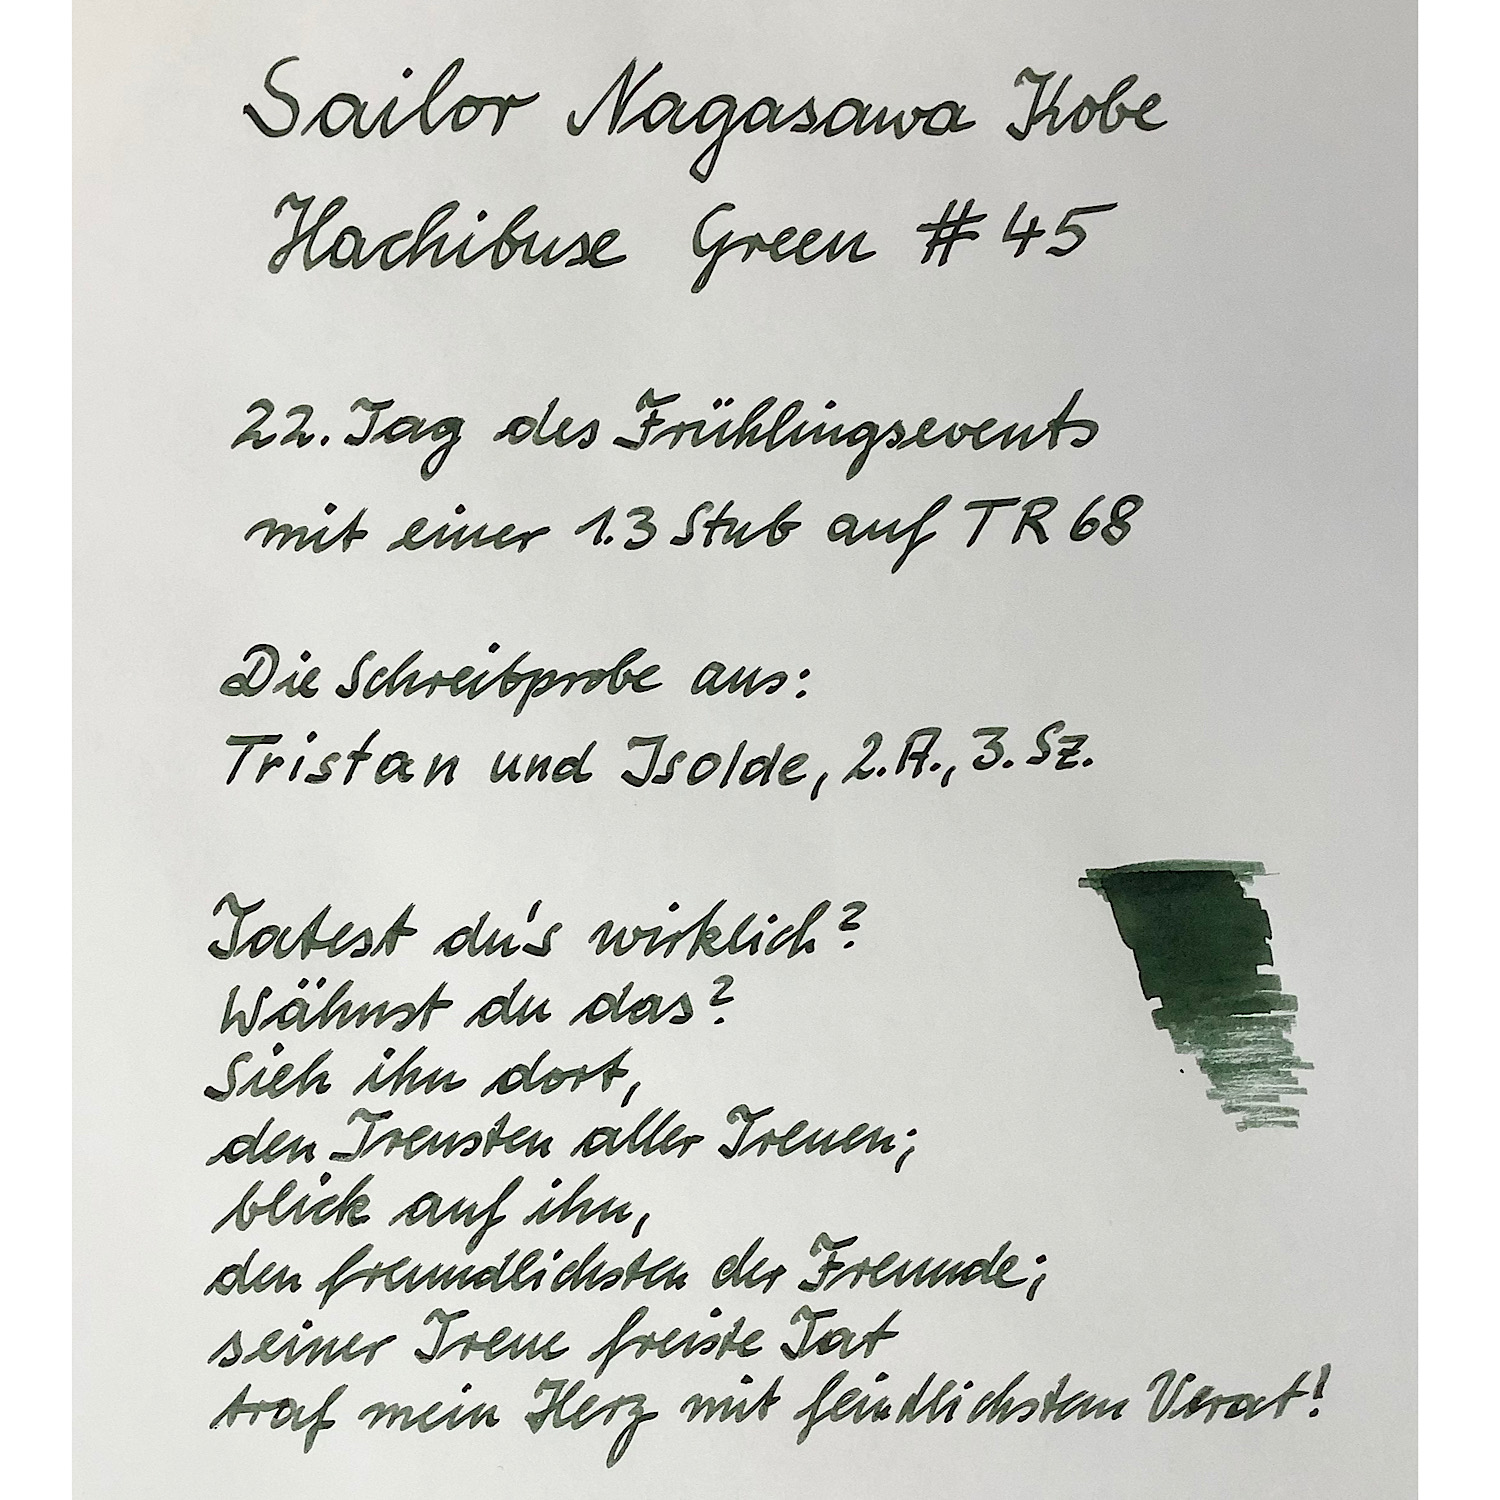 Sailor Nagasawa Kobe
Hachibuse Green #45
22. Tag des Frühlingsevents
mit einer 1.3 Stub auf TR 68
Die Schreibprobe aus:
Tristan und Isolde, 2.A., 3. Sz.
Tatest du's wirklich?
Wähnst du das?
Sieh ihn dort,
den Treusten aller Treuen;
blick auf ihn,
den freundlichsten der Freunde;
seiner Treue freiste Tat
traf mein Herz mit feindlichstem Verat!